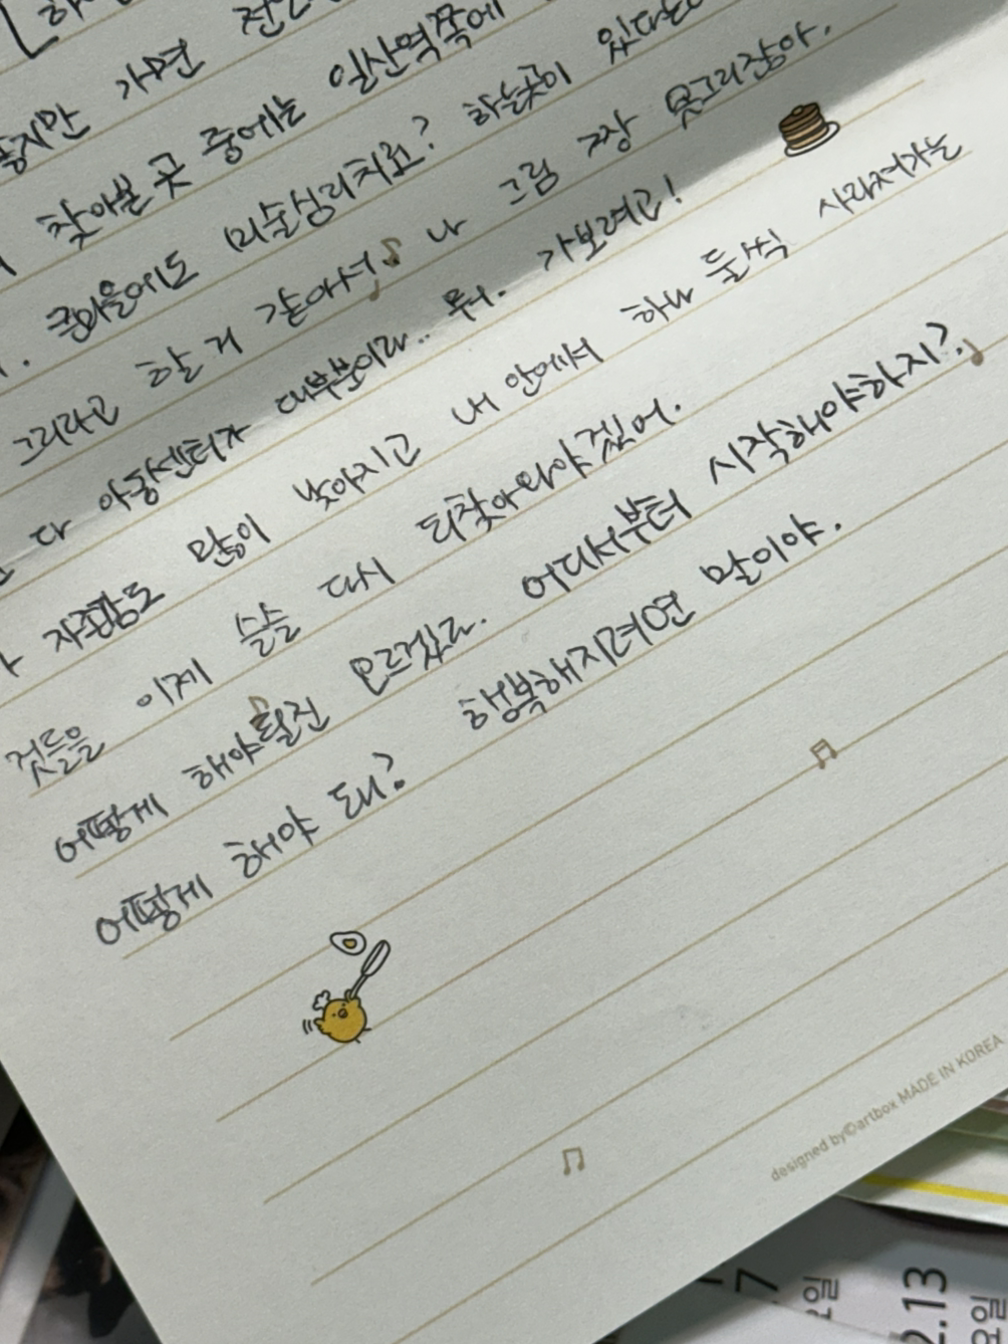 좋지만 가면
찾아본 곳 중에는 일산역쪽에
. 쿰마을에도 미술심리치료? 하는곳이 있다는
그리라고 할 거 같아서, 나 그림 그장 못그리잖아.
다 아동센터가 대부분이라.. 뭐. 가보려고!
자존감도 많이 낮아지고 내 안에서 하나 둘씩 사라져가는
것들을 이제 슬슬 다시 되찾아와야겠어.
어떻게 해야될진 모르겠고. 어디서부터 시작해야하지?
어떻게 해야 돼? 행복해지려면 말이야.
designed by©artbox MADE IN KOREA
7
.13
요일
요일